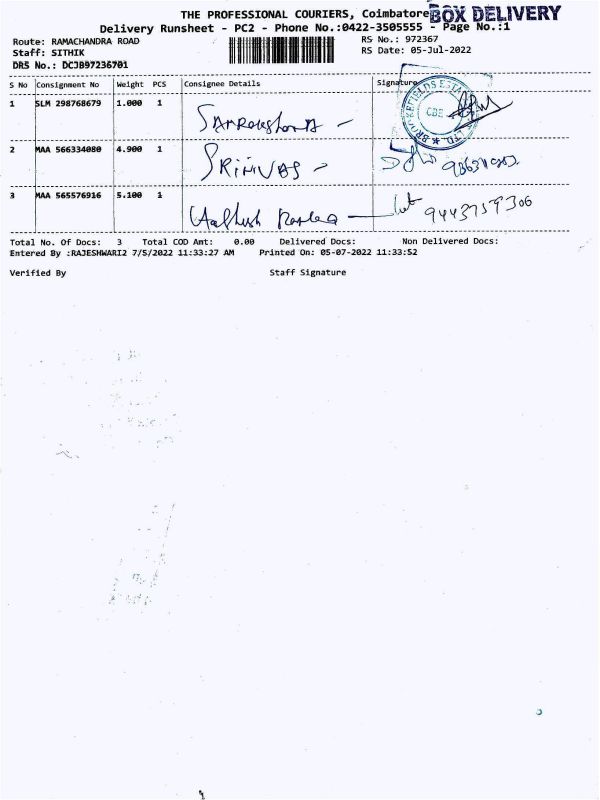 THE PROFESSIONAL COURIERS, Coimbatore BOX DELIVERY
Delivery Runsheet - PC2 - Phone No.:0422-3505555 - Page No.:1
Route: RAMACHANDRA ROAD RS No.: 972367
Staff: SITHIK RS Date: 05-Jul-2022
DRS No.: DCJB97236701
S No Consignment No Weight PCS Consignee Details Signature
1 SLM 298768679 1.000 1
CBE
2 MAA 566334080 4.900 1 SRINIVAS
3 MAA 565576916 5.100 1
9443759306
Total No. Of Docs: 3 Total COD Amt: 0.00 Delivered Docs: Non Delivered Docs:
Entered By :RAJESHWARI2 7/5/2022 11:33:27 AM Printed On: 05-07-2022 11:33:52
Verified By Staff Signature